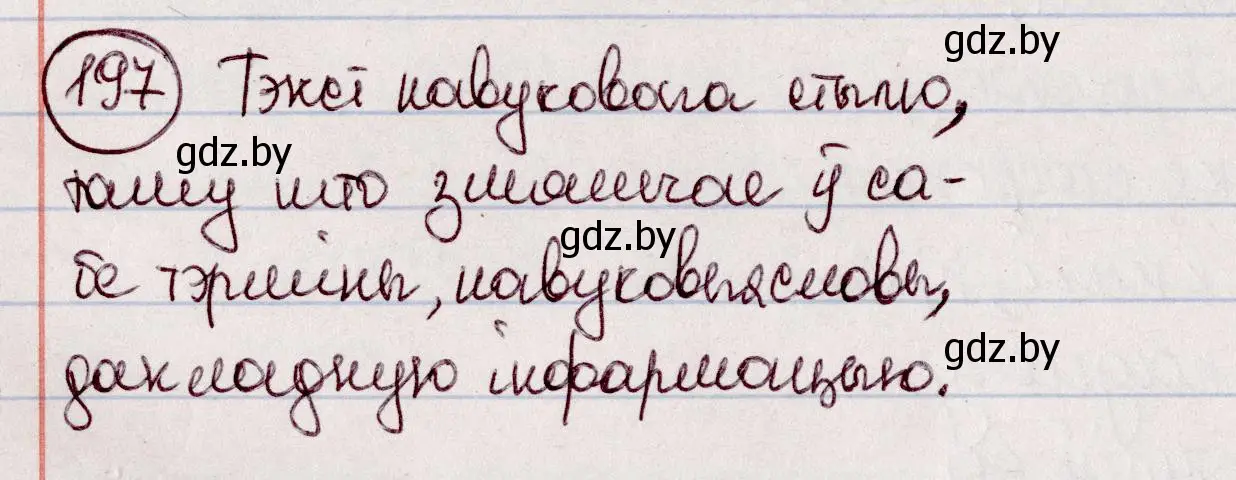 197 Тэкст навуковага стылю,
таму што змяшчае ў са-
бе тэрміны, навуковыя словы,
дакладную інфармацыю.
gdz.by
gdz.by
gdz.by
gdz.by